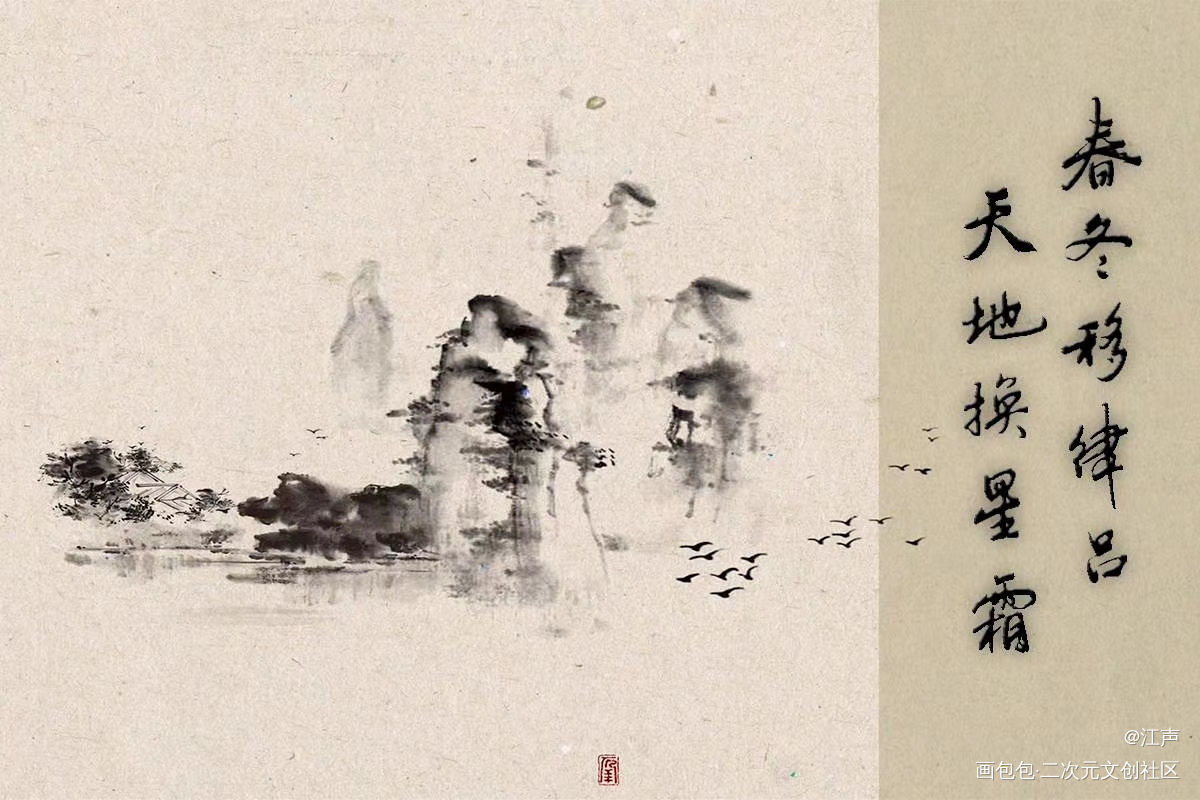 春冬移律吕
天地换星霜
@江声
画包包·二次元文创社区